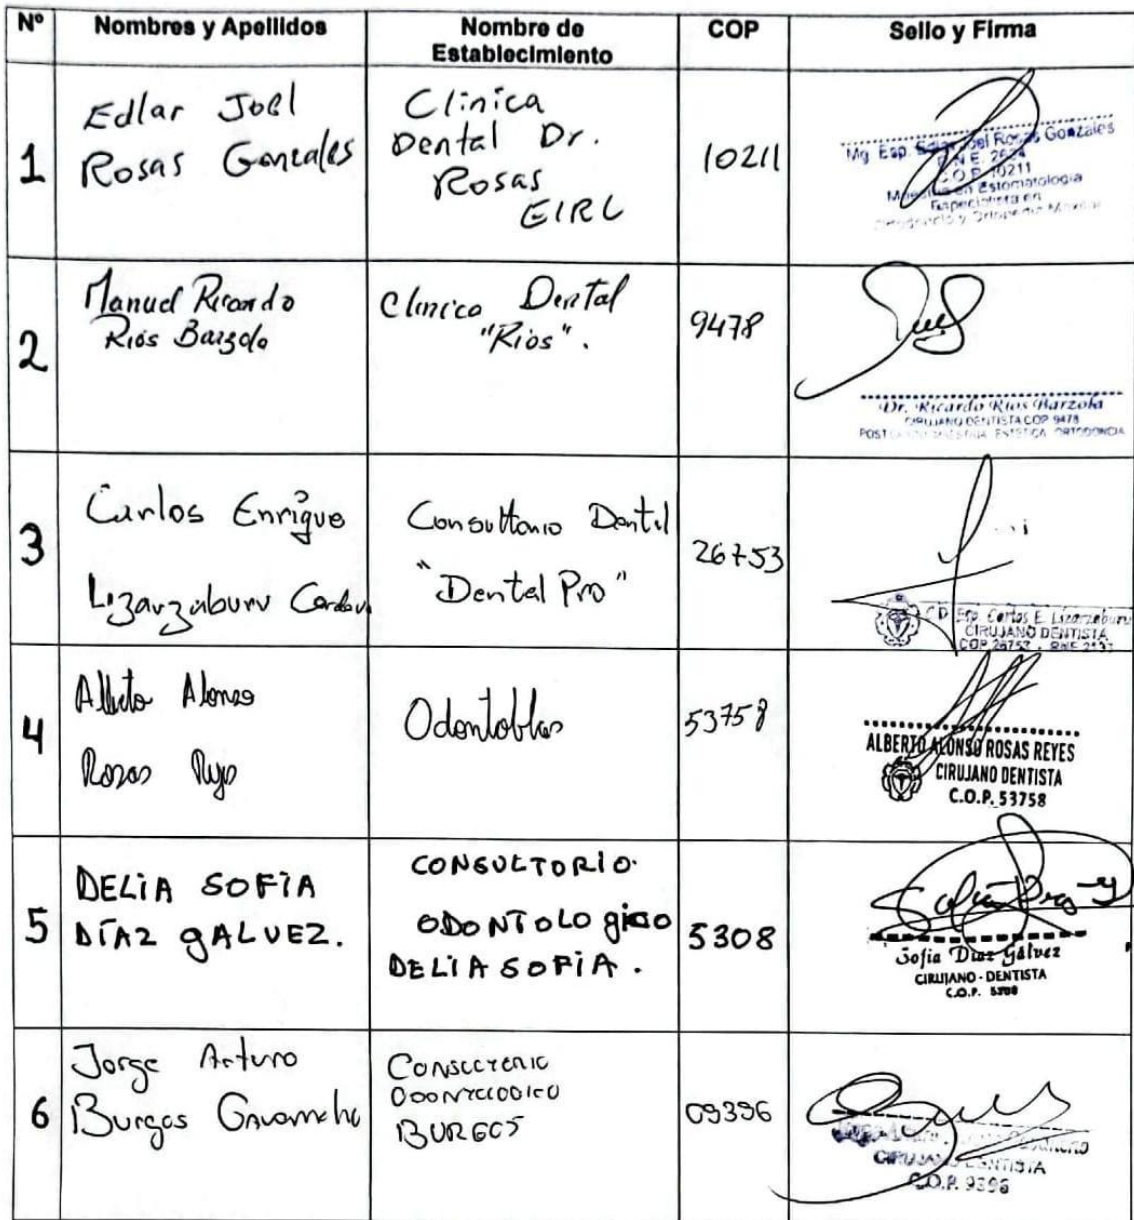 Nº Nombres y Apellidos Nombre de Establecimiento COP Sello y Firma
1
Edlar Joel
Rosas Gonzales
Clinica
Dental Dr.
Rosas
EIRL
10211
Mg. Esp. Edlar Joel Rosas Gonzales
R.N.E. 2624
C.O.P. 10211
Maestria en Estomatologia
Especialista en
Ortodoncia y Ortopedia Maxilar
2
Manuel Ricardo
Rios Barzola
Clinica Dental
"Rios".
9478
Dr. Ricardo Rios Barzola
CIRUJANO DENTISTA COP 9478
POST ESTETICA ORTODONCIA
3
Carlos Enrique
Lizarzaburu Cordova
Consultorio Dental
"Dental Pro"
26753
C.D. Esp. Carlos E. Lizarzaburu
CIRUJANO DENTISTA
COP 26753 - RNE 2137
4
Alberto Alonso
Rosas Reyes
Odontoblas
53758
ALBERTO ALONSO ROSAS REYES
CIRUJANO DENTISTA
C.O.P. 53758
5
DELIA SOFIA
DÍAZ GALVEZ.
CONSULTORIO.
ODONTOLOgico
DELIA SOFIA.
5308
Sofia Diaz Gálvez
CIRUJANO - DENTISTA
C.O.P. 5308
6
Jorge Arturo
Burgos
CONSULTORIO
ODONTOLOGICO
BURGOS
09396
CIRUJANO DENTISTA
C.O.P. 9396